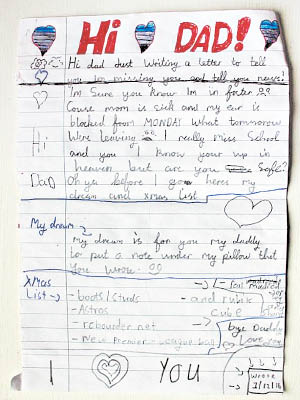 Hi DAD!
Hi dad Just Writing a letter to tell
you I'm missing you and tell you news!
I'm Sure you know Im in foster
Cause mom is sick and my ear is
blocked from MONDAY What tommorow
Were leaving I really miss School
Hi
and you I know your up in
heaven but are you Safe?
DaD
Oh ya before I go heres my
dream and xmas list
My dream
my dream is for you my daddy
to put a note under my pillow that
You wrote.
Xmas
List →
- boots/studs
- Astros
- rebounder net
- New Premier league ball
- and rubix
cube
bye Daddy
Love
I
You
Wrote
1/12/16